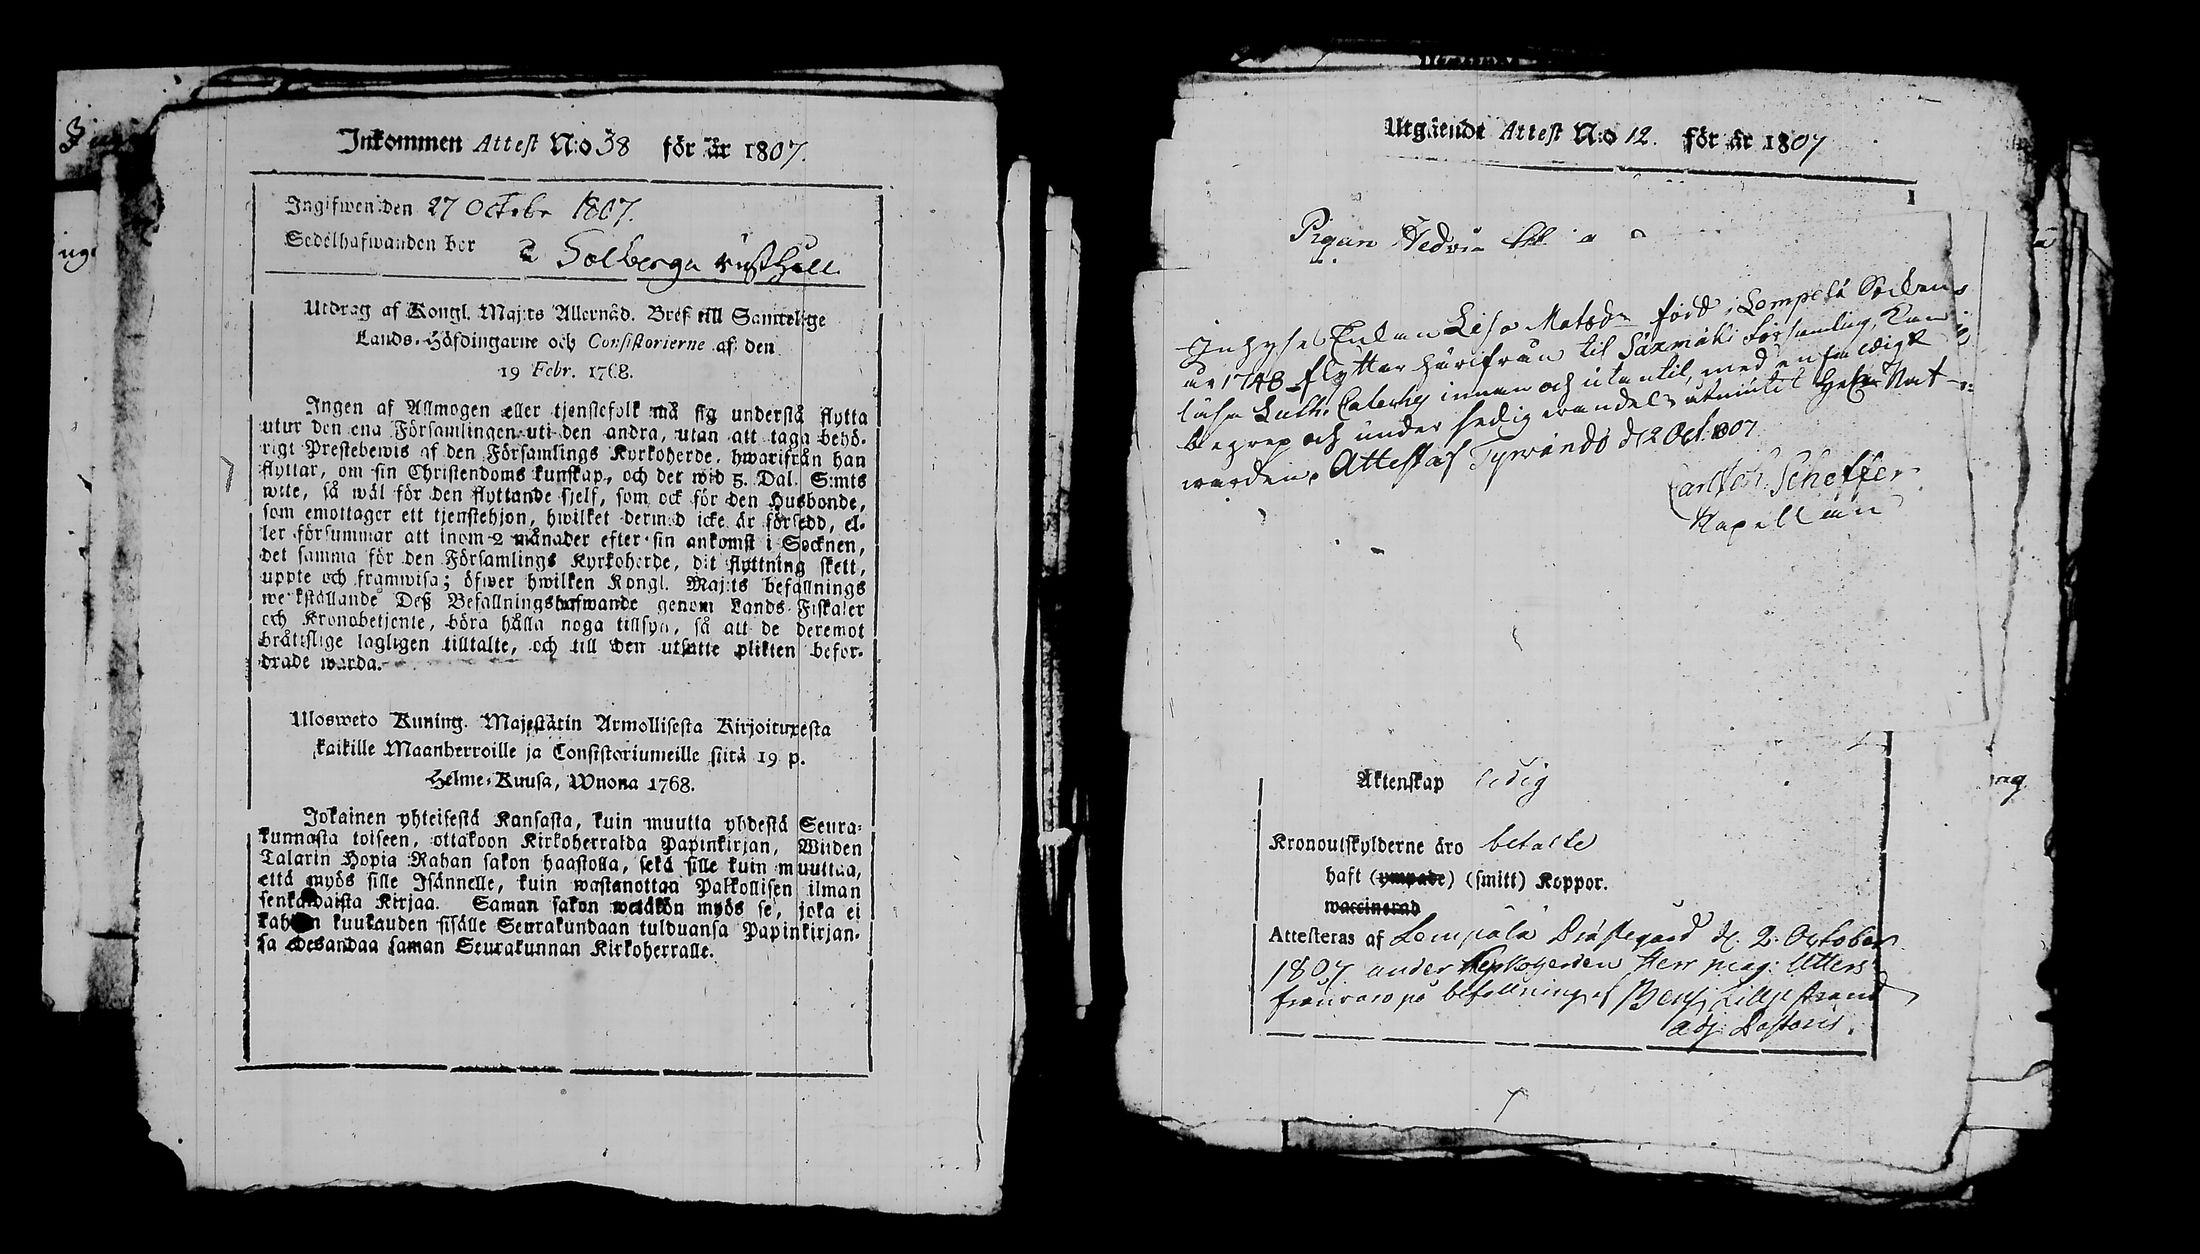 Inkommen Attest N:o 38 för år 1807.
Ingifwen den 27 Octobr 1807.
Sedelhafwanden bor å Solberga rusthåll
Utdrag af Kongl. Maj:ts Allernåd. Bref till Samtelige
Lands-Höfdingarne och Consistorierne af den
19 Febr. 1768.
Ingen af Allmogen eller tjenstefolk må sig understå flytta
utur den ena Församlingen uti den andra, utan att taga behö-
rigt Prestebewis af den Församlings Kyrkoherde, hwarifrån han
flyttar, om sin Christendoms kunskap, och det wid 5. Dal. S:mts
wite, så wäl för den flyttande sjelf, som ock för den Husbonde,
som emottager ett tjenstehjon, hwilket dermed icke är försedd, el-
ler försummar att inom 2 månader efter sin ankomst i Socknen,
det samma för den Församlings Kyrkoherde, dit flyttning skett,
uppte och framwisa; öfwer hwilken Kongl. Maj:ts befallnings
werkställande Deß Befallningshafwande genom Lands-Fiskaler
och Kronobetjente, böra hålla noga tillsyn, så att de deremot
bråttslige lagligen tilltalte, och till den utsatte plikten befor-
drade warda.
Ulosweto Kuning. Majestätin Armollisesta Kirjoituxesta
kaikille Maanherroille ja Consistoriumeille siitä 19 p.
Helme-Kuusa, Wuona 1768.
Jokainen yhteisestä Kansasta, kuin muutta yhdestä Seura-
kunnasta toiseen, ottakoon Kirkoherralda Papinkirjan, Wiiden
Talarin Hopia Rahan sakon haastolla, sekä sille kuin muuttaa,
että myös sille Isännelle, kuin wastanottaa Palkollisen ilman
senkaldaista Kirjaa. Saman sakon wetäkön myös se, joka ei
kahden kuukauden sisälle Seurakundaan tulduansa Papinkirjan-
sa edesandaa saman Seurakunnan Kirkoherralle.
Utgående Attest N:o 12. för år 1807
Pigan Hedvig
Inhyses Enkan Lisa Matsdr född i Lempelä Sockens
år 1748 flyttar härifrån til Säxmäki Församling, Kan
läsa Luth. Cateches innan och utantil, med enfaldigt
begrep och under sedig wandel utmintil Natt-
warden. Attesteras Tyrwändö d 2 Oct. 1807
Carl Joh. Scheffer
Kapellan
Äktenskap ledig
Kronoutskylderne äro betalte
haft (ympade) (smitt) Koppor.
waccinerad
Attesteras af Lempälä Prästegård d. 2. October
1807 under Kyrkoherden Herr Mag:
frånvaro på befallning af Benj. Lilljestrand
adj. Pastoris.